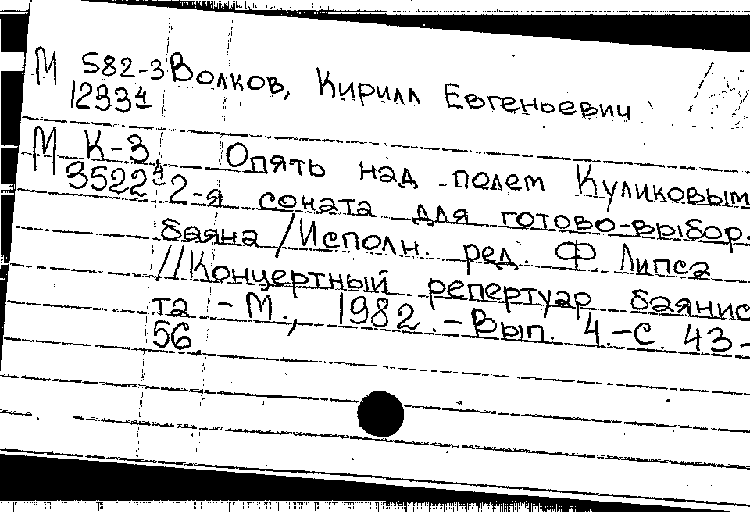 М 582-3 Волков, Кирилл Евгеньевич
12334
М К-3 Опять над полем Куликовым
3522 2-я соната для готово-выбор.
баяна / Исполн. ред. Ф. Липса
// Концертный репертуар баянис
та - М., 1982. - Вып. 4. - С. 43-
56